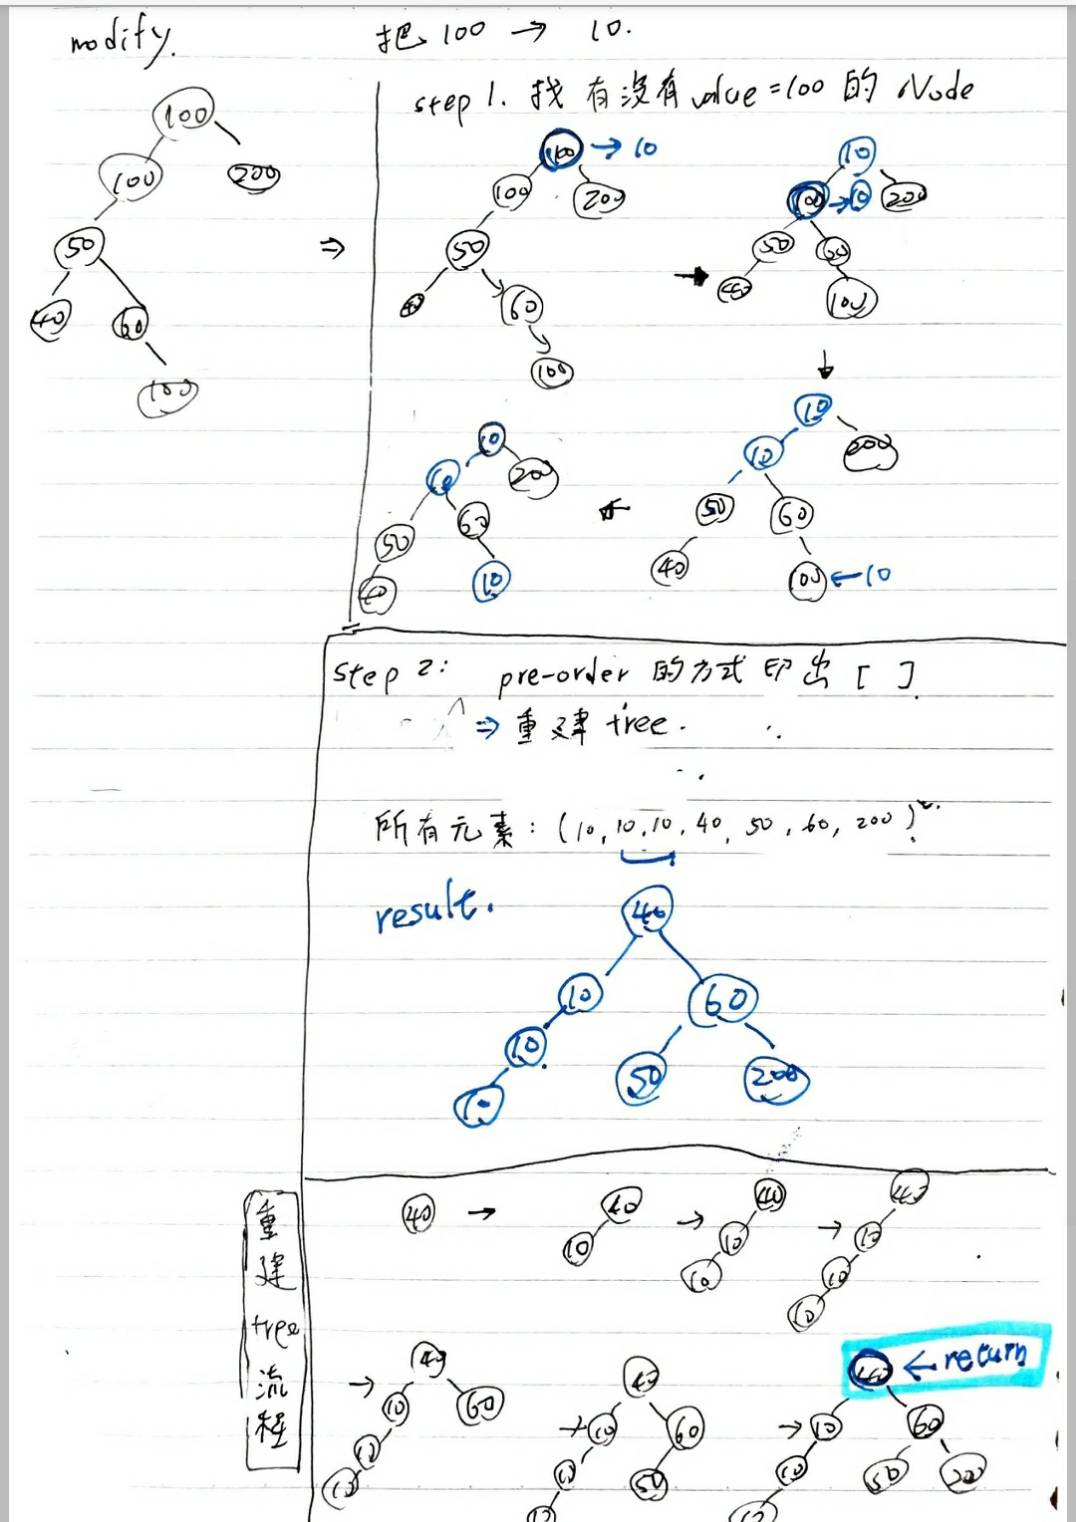 modify.
把 100 → 10.
step 1. 找 有沒有 value = 100 的 Node
100
100
200
50
40
60
100
⇒
100 → 10
100
200
50
60
100
→
10
100 → 10
200
50
60
100
↓
10
10
200
50
60
40
100 ← 10
←
10
10
200
60
50
40
10
step 2: pre-order 的方式印出 [ ]
⇒ 重建 tree.
所有元素: (10, 10, 10, 40, 50, 60, 200)
result.
40
10
60
10
50
200
10
重建tree流程
40 →
40
10
→
40
10
10
→
40
10
10
10
→
40
10
60
10
10
→
40
10
60
10
50
10
→
40 ← return
10
60
10
50
200
10